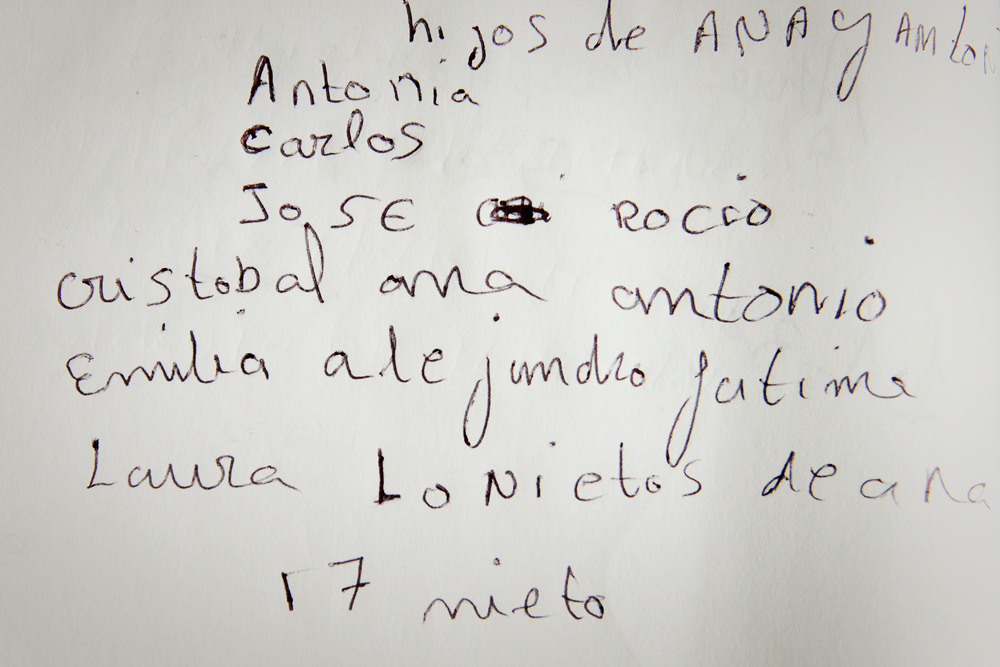 hijos de ANA Y AMtoni
Antonia
Carlos
JoSE ROCIO
cristobal ana antonio
Emilia alejandro fatima
Laura Lo Nietos de ana
17 nieto